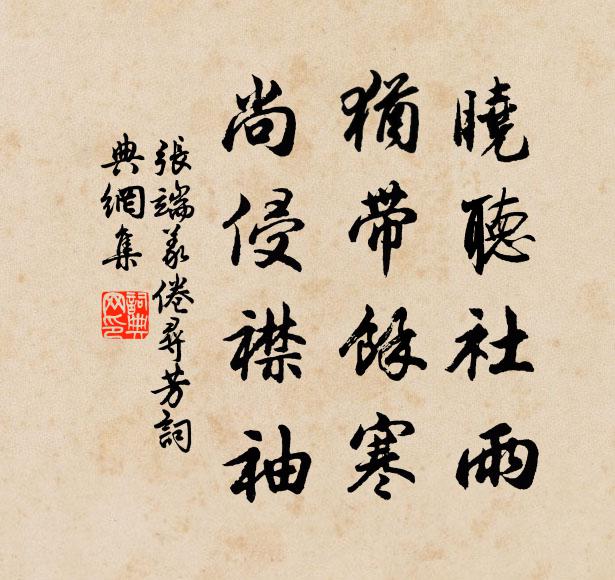 曉聽社雨
猶帶餘寒
尚侵襟袖
張端義倦尋芳詞
典網集
詞典
网印